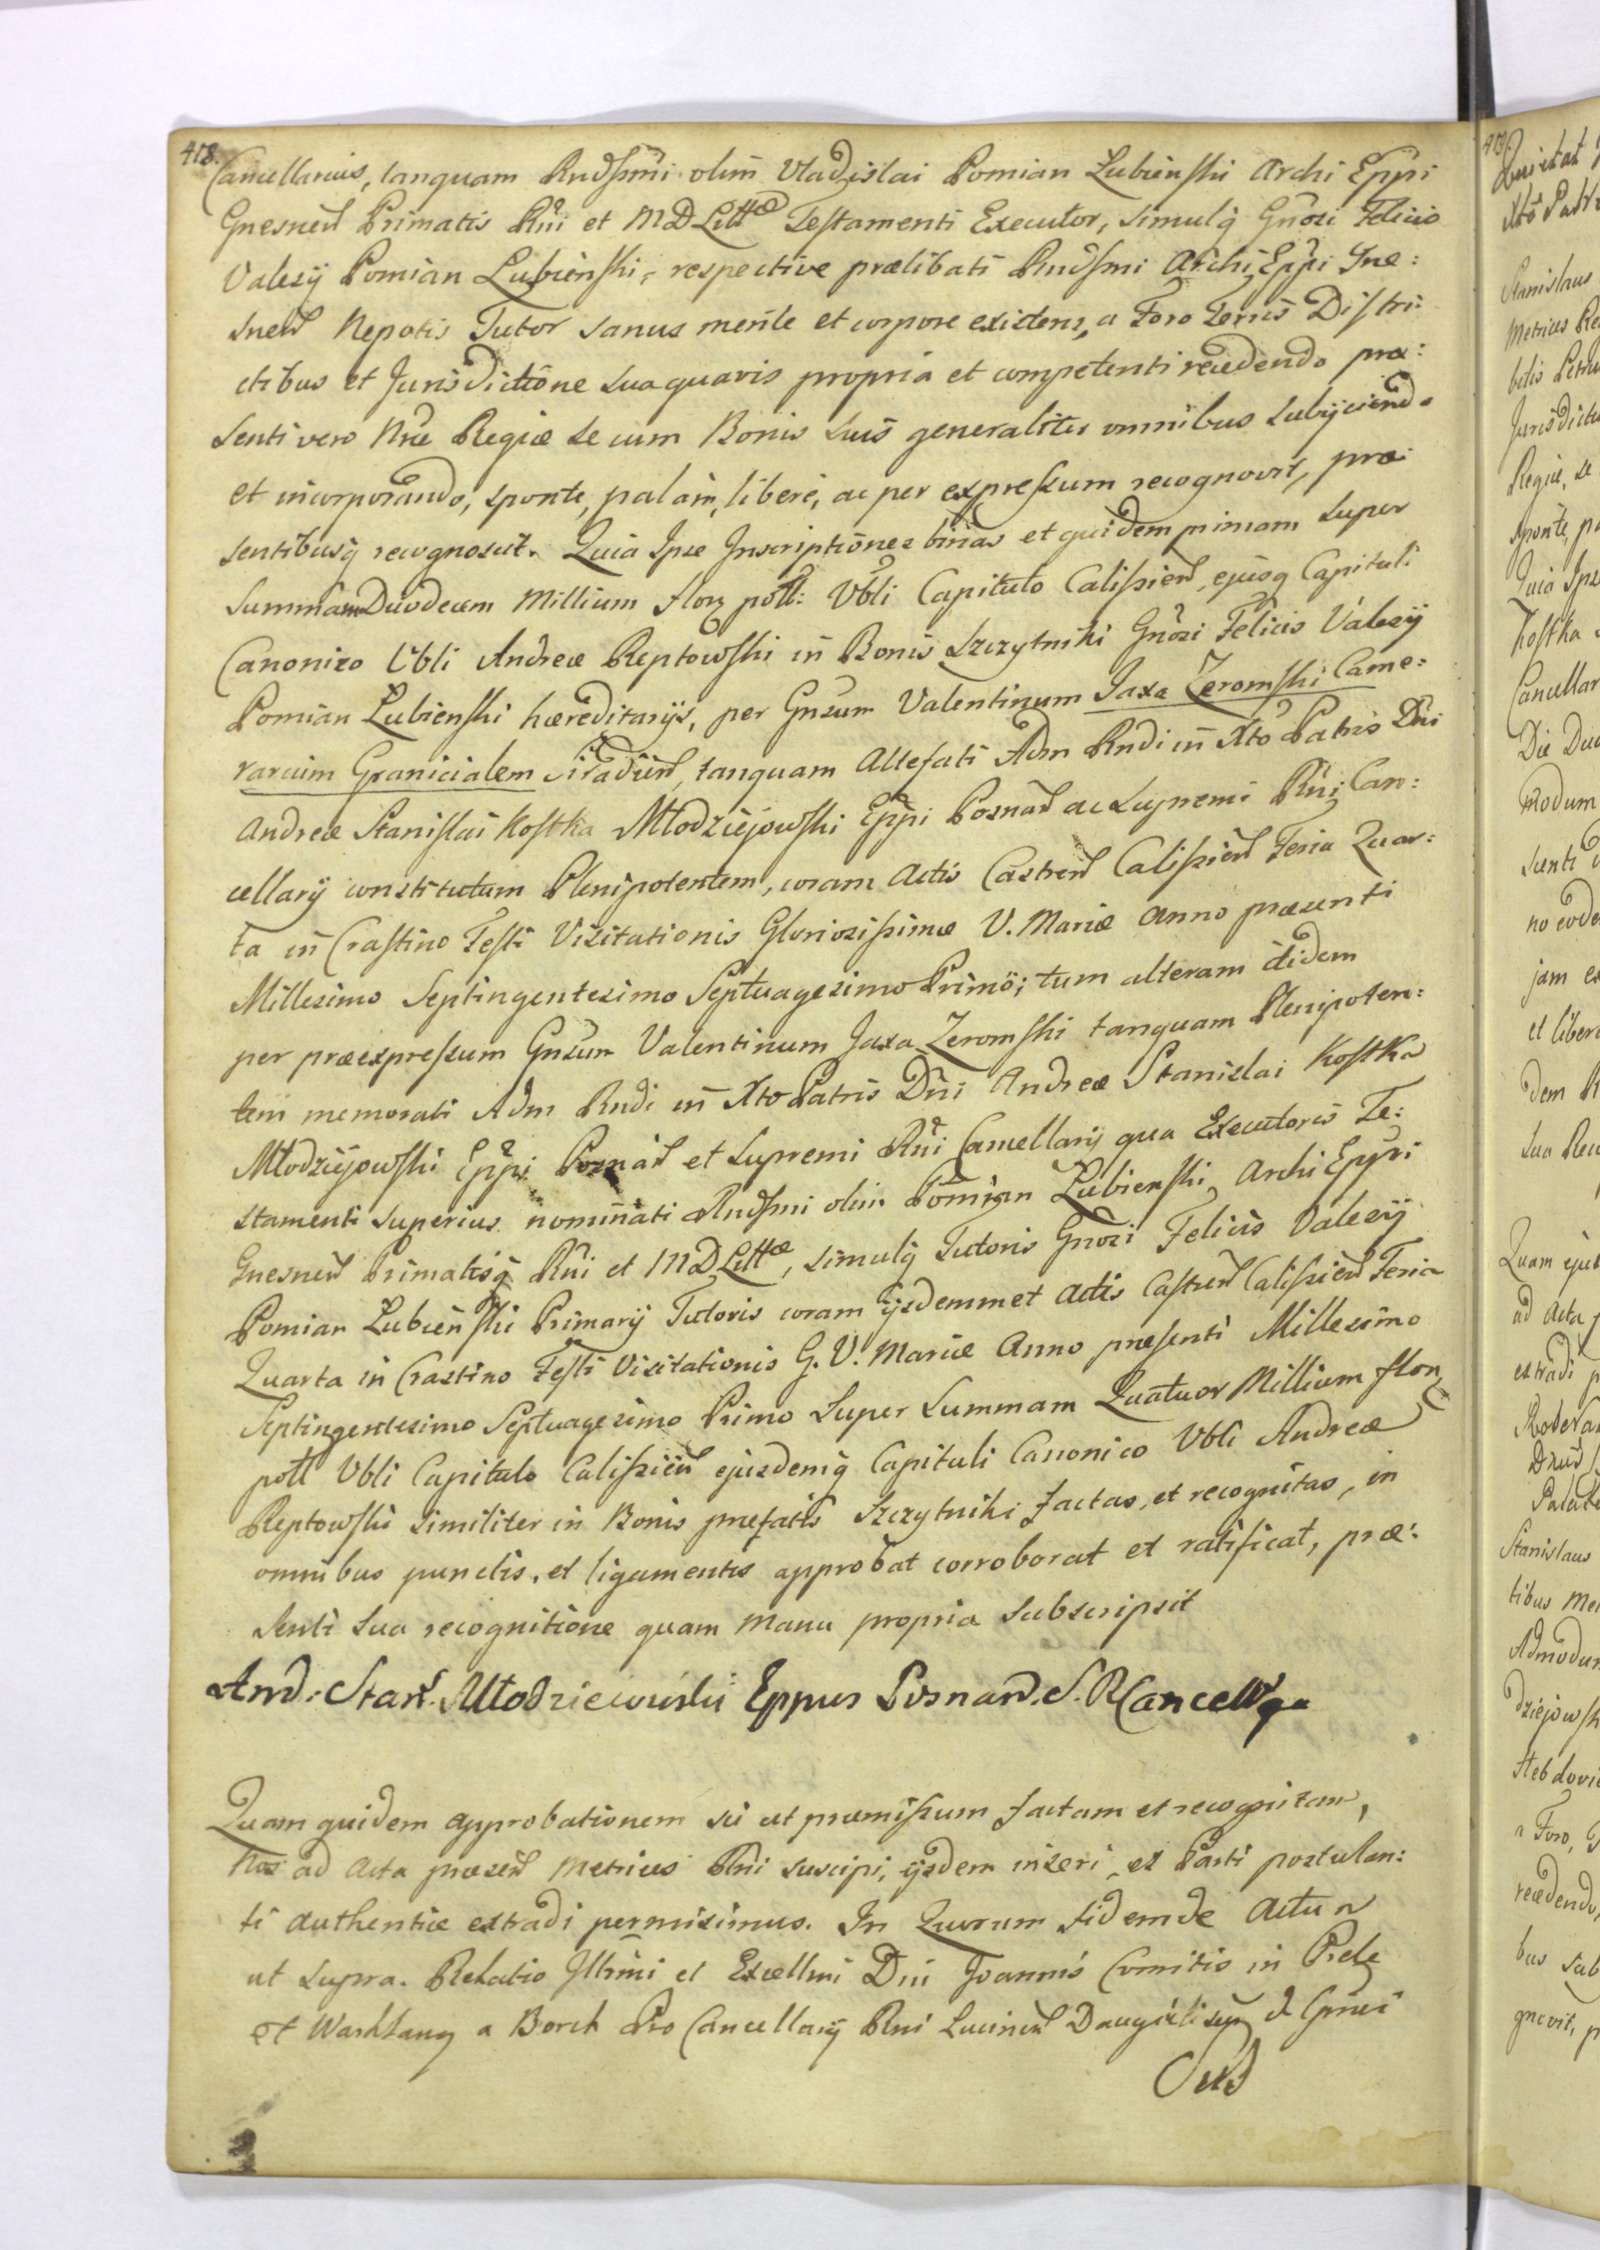 418.
Cancellarius, tanquam Rndssmi olim Vladislai Pomian Lubienski Archi Eppi
Gnesnen Primatis Rni et MDLittae Testamenti Executor, simulq Gnosi Felicis
Valezij Pomian Lubienski, respective prælibati Rndssmi Archi Eppi Gne:
snen Nepotis Tutor sanus mente et corpore existens, a Foro Terris Distri:
ctibus et Jurisdictione sua quavis propria et competenti recedendo præ:
senti vero Nræ Regiæ se cum Bonis suis generaliter omnibus subijciendo
et incorporando, sponte, palam, libere, ac per expressum recognovit, præ:
sentibusq recognoscit. Quia Ipse Inscriptiones binas et quidem primam super
summam Duodecim Millium flor poll: Vbli Capitulo Calissien, ejusq Capituli
Canonico Vbli Andreæ Reptowski in Bonis Szczytniki Gnosi Felicis Valezij
Pomian Lubienski hæreditarijs, per Gnsum Valentinum Jaxa Zeromski Came:
rarium Granicialem Siradien, tanquam Altefati Adm Rndi in Xto Patris Dni
Andreæ Stanislai Kostka Młodziejowski Eppi Posnan ac Supremi Rni Can:
cellarij constitutum Plenipotentem, coram Actis Castren Calissien Feria Quar:
ta in Crastino Festi Visitationis Gloriosissimæ V. Mariæ Anno præsenti
Millesimo Septingentesimo Septuagesimo Primo; tum alteram itidem
per præexpressum Gnsum Valentinum Jaxa Zeromski tanquam Plenipoten:
tem memorati Adm Rndi in Xto Patris Dni Andreæ Stanislai Kostka
Młodziejowski Eppi Posnan et Supremi Rni Cancellarij qua Executoris Te:
stamenti superius nominati Rndssmi olim Pomian Lubienski Archi Eppi
Gnesnen Primatisq Rni et MDLittæ, simulq Tutoris Gnosi Felicis Valezij
Pomian Lubienski Primarij Tutoris coram ijsdemmet Actis Castren Calissien Feria
Quarta in Crastino Festi Visitationis G. V. Mariæ Anno præsenti Millesimo
Septingentesimo Septuagesimo Primo super summam Quatuor Millium flor
poll Vbli Capitulo Calissien ejusdemq Capituli Canonico Vbli Andreæ
Reptowski similiter in Bonis præfatis Szczytniki factas, et recognitas, in
omnibus punctis, et ligamentis approbat corroborat et ratificat, præ:
senti sua recognitione quam manu propria subscripsit
And: Stan. Młodzieiowski Eppus Posnan. S. R Cancell
Quam quidem approbationem sic ut præmissum factam et recognitam,
Nos ad Acta præsen Metrices Rni suscipi, ijsdem inseri, et Parti postulan:
ti authentice extradi permisimus. In Quorum fidem de Actu
ut supra. Relatio Illmi et Excellmi Dni Joannis Comitis in Prele
et Warklany a Borch Pro Cancellarij Rni Lucinen